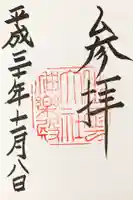 参拝
平成三十年十一月八日